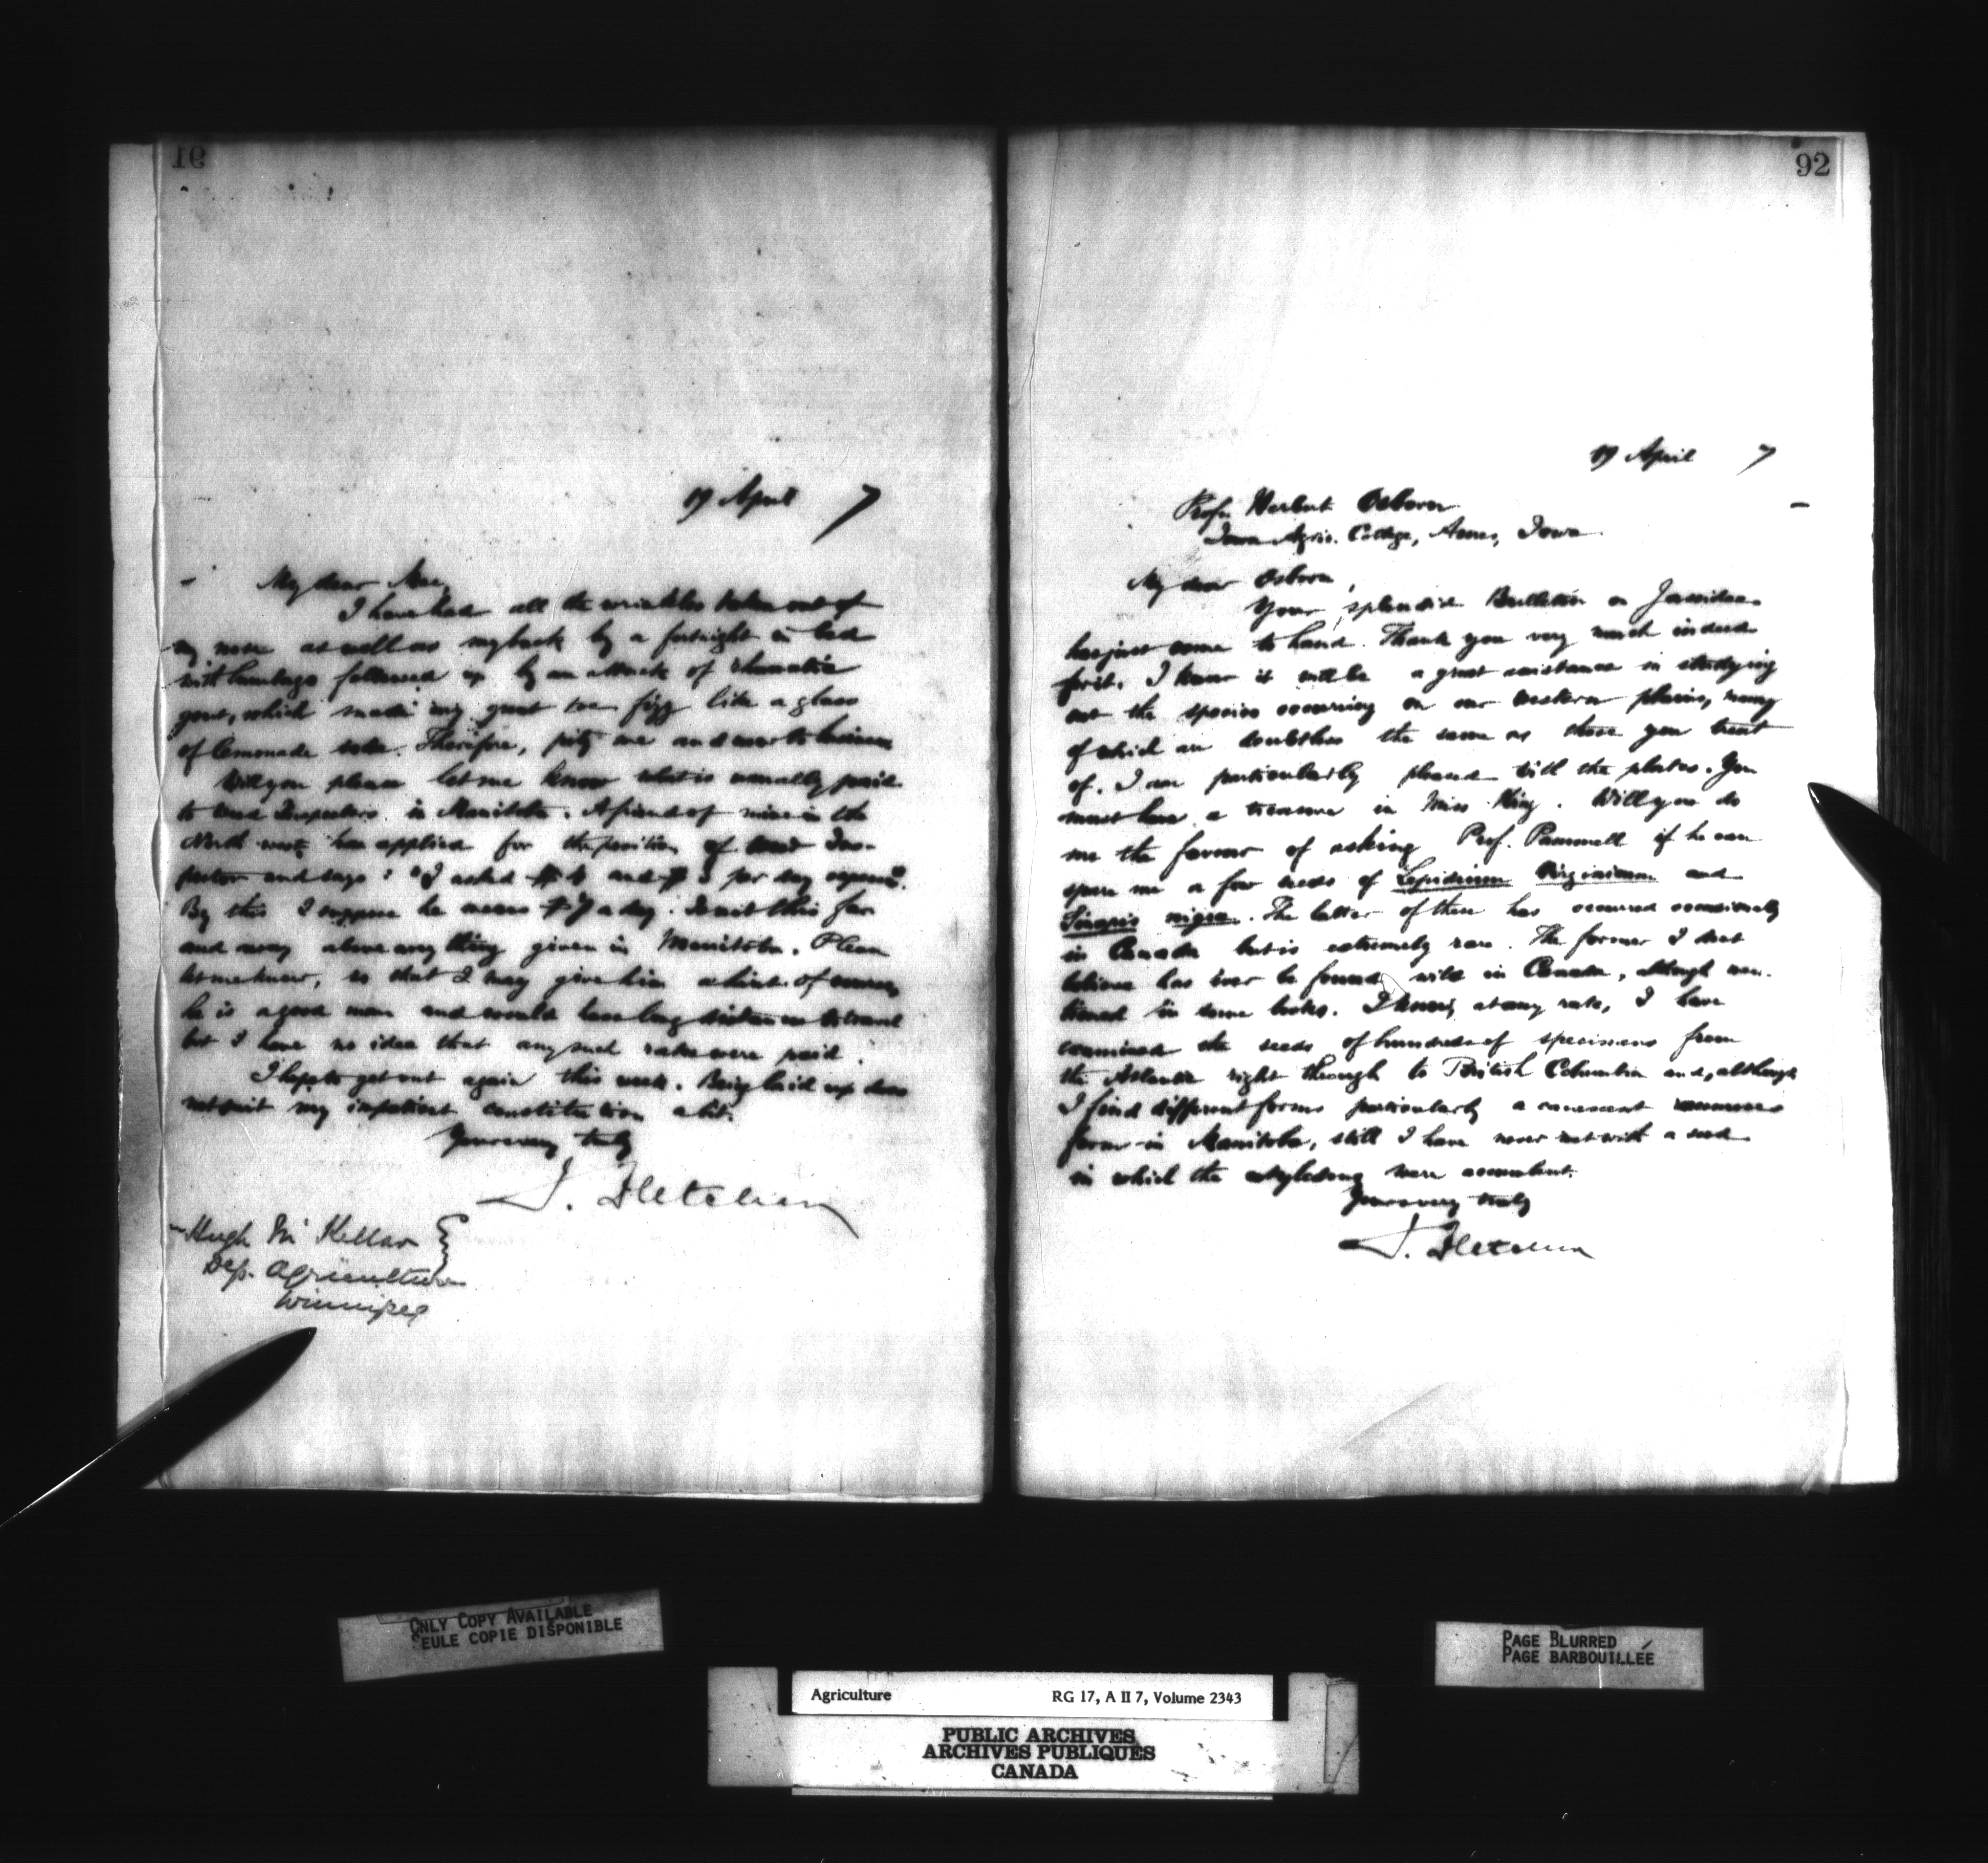 91
19 April 7
My dear Mac,
I have had all the wrinkles taken out of
my nose as well as my back by a fortnight in bed
with lumbago followed up by an attack of rheumatic
gout, which made my great toe fizz like a glass
of lemonade. Therefore, pity me and now to business
Will you please let me know what is usually paid
to weed Inspectors in Manitoba. A friend of mine in the
North west has applied for the position of weed Ins-
pector and says: "I asked $4 and $3 per day expenses".
By this I suppose he means $7 a day. Is not this far
and away above any thing given in Manitoba. Please
let me know, so that I may give him a hint. Of course
he is a good man and would have long distances to travel
but I have no idea that any such rates were paid.
I hope to get out again this week. Being laid up does
not suit my impatient constitution a bit.
Yours very truly
J. Fletcher
Hugh McKellar
Dep. Agriculture
Winnipeg
92
19 April 7
Prof. Herbert Osborn
Iowa Agric. College, Ames, Iowa
My dear Osborn,
Your splendid Bulletin on Jassidae
has just come to hand. Thank you very much indeed
for it. I know it will be a great assistance in studying
out the species occurring on our western plains, many
of which are doubtless the same as those you treat
of. I am particularly pleased with the plates. You
must have a treasure in Miss King. Will you do
me the favour of asking Prof. Pammell if he can
spare me a few seeds of Lepidium Virginicum and
Sinapis nigra. The latter of these has occurred occasionally
in Canada but is extremely rare. The former I dont
believe has ever be found wild in Canada, although men-
tioned in some books. I know, at any rate, I have
examined the seeds of hundreds of specimens from
the Atlantic right through to British Columbia and, although
I find different forms particularly a canescent
form in Manitoba, still I have never met with a seed
in which the cotyledons were accumbent.
Yours very truly
J. Fletcher
ONLY COPY AVAILABLE
SEULE COPIE DISPONIBLE
PAGE BLURRED
PAGE BARBOUILLÉE
Agriculture RG 17, A II 7, Volume 2343
PUBLIC ARCHIVES
ARCHIVES PUBLIQUES
CANADA